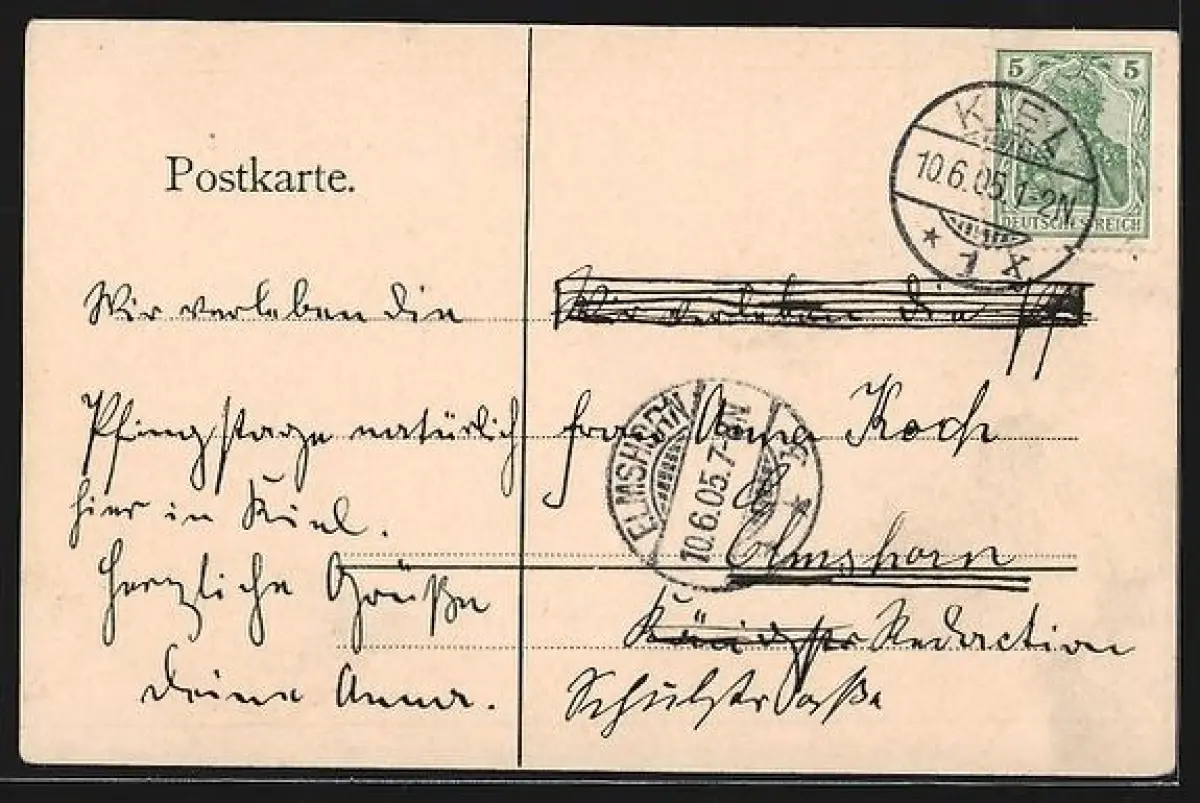 Postkarte.
5 5
DEUTSCHES REICH
KIEL
10.6.05.1-2N.
* 1 X
Wir verleben die
Pfingstage natürlich
hier in Kiel.
Herzliche Grüße
Deine Anna.
Wir verleben die
Frau Anna Koch
ELMSHORN
10.6.05.7-8N
Elmshorn
Redaction
Schulstraße